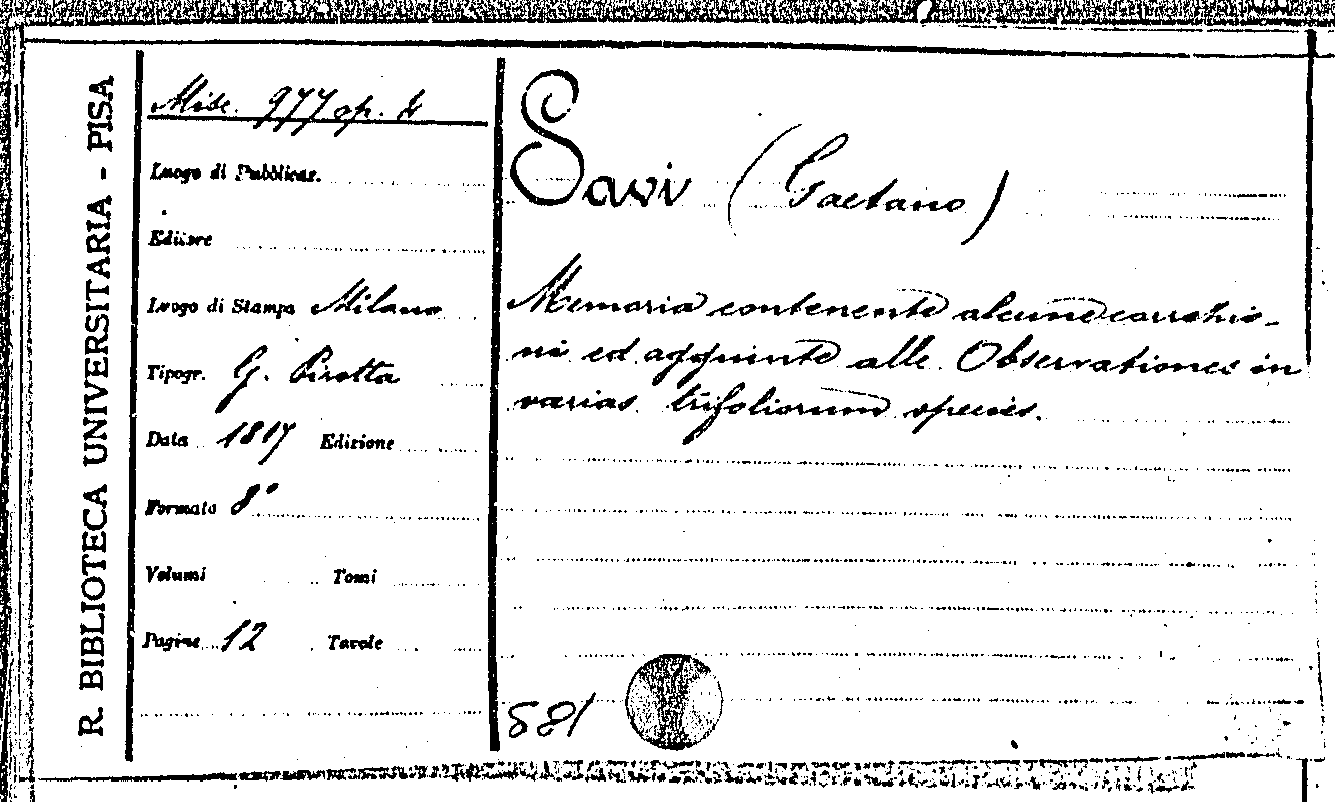 R. BIBLIOTECA UNIVERSITARIA - PISA
Misc. 977 op. 2
Luogo di Pubblicaz.
Editore
Luogo di Stampa Milano
Tipogr. G. Pirotta
Data 1817 Edizione
Formato 8°
Volumi Tomi
Pagine 12 Tavole
Savi (Gaetano)
Memoria contenente alcune correzio-
ni ed aggiunte alle Observationes in
varias trifoliorum species.
581